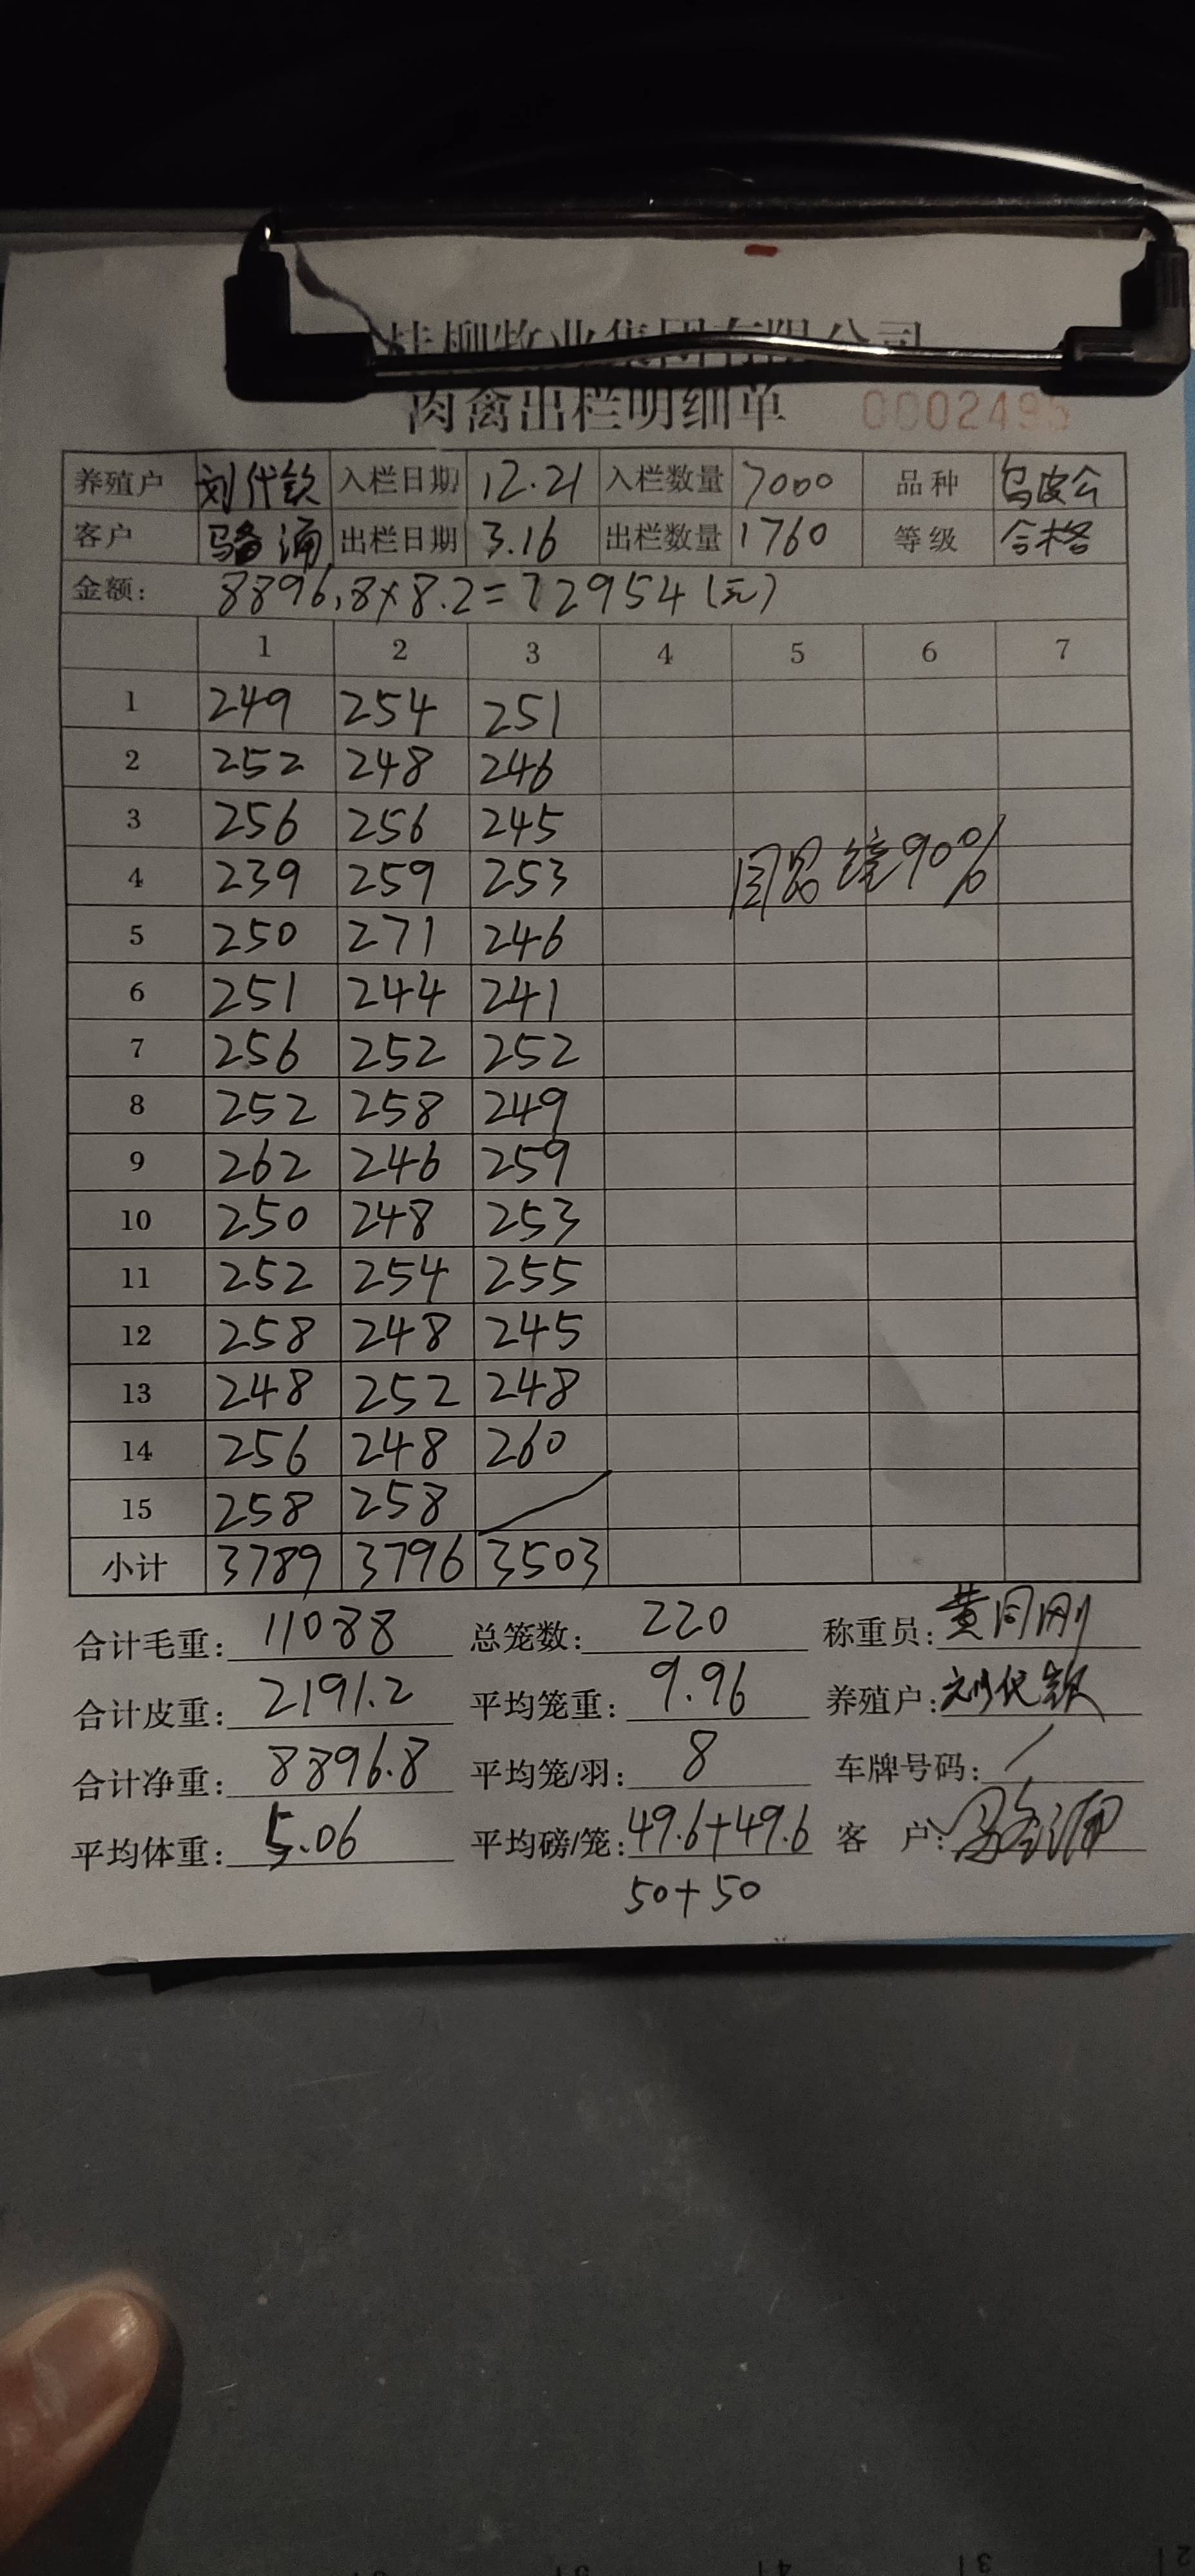 桂柳牧业集团有限公司
肉禽出栏明细单 0002495
养殖户 刘代钦 入栏日期 12.21 入栏数量 7000 品种 乌皮公
客户 骆 出栏日期 3.16 出栏数量 1760 等级 合格
金额: 8896.8×8.2=72954(元)
1 2 3 4 5 6 7
1 249 254 251
2 252 248 246
3 256 256 245
4 239 259 253 90%
5 250 271 246
6 251 244 241
7 256 252 252
8 252 258 249
9 262 246 259
10 250 248 253
11 252 254 255
12 258 248 245
13 248 252 248
14 256 248 260
15 258 258
小计 3789 3796 3503
合计毛重: 11088 总笼数: 220 称重员: 黄同刚
合计皮重: 2191.2 平均笼重: 9.96 养殖户: 刘代钦
合计净重: 8896.8 平均笼/羽: 8 车牌号码: /
平均体重: 5.06 平均磅/笼: 49.6+49.6 客 户:
50+50